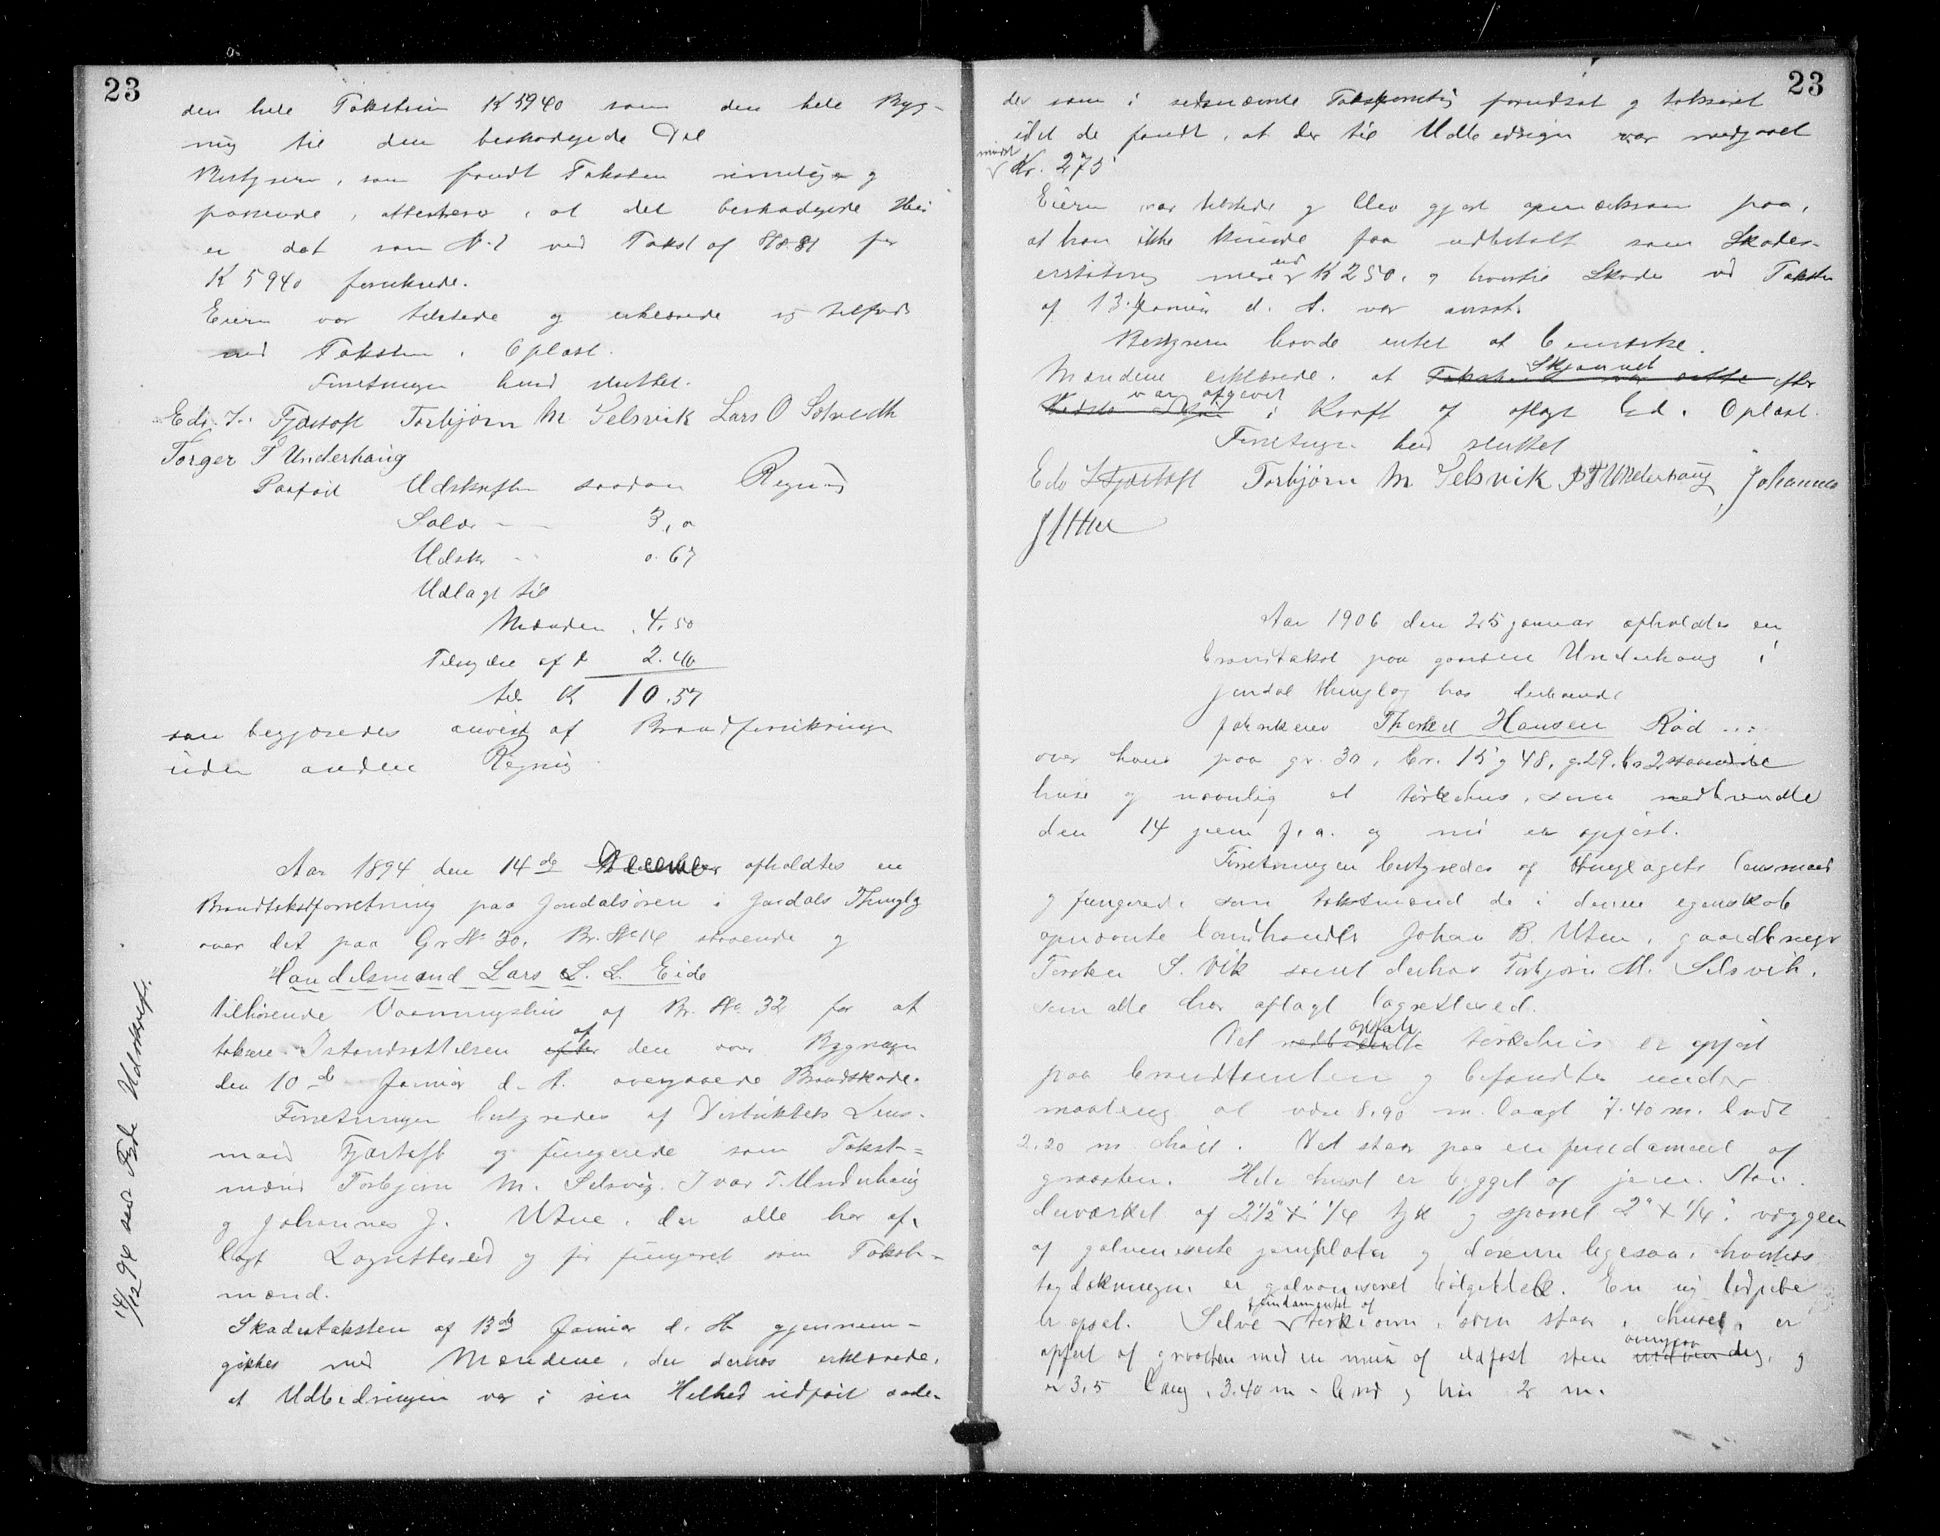 23
den hele Takstsum K 5940 som den hele Byg-
ning til den beskadigede Del
Bestyreren, som fandt Taksten rimelig og
passende, attesterer, at det beskadigede Hus
er det som No 1 ved Takst af 81 for
K 5940 forsikrede.
Eieren var tilstede og erklærede sig tilfreds
med Taksten. Oplæst.
Forretningen hermed sluttet.
Edv. J. Fjærtoft Torbjørn M Selsvik Lars O Solvedt
Torger T Underhaug
Paaført Udskriften saadan Regning
Salær - - 3,0
Udskr - 0.67
Udlagt til
Mænden . 4.50
Tilsyn af 2.40
tils K 10.57
som begjæredes anvist af Brandforsikringen
uden anden Regning.
Aar 1894 den 14de December afholdtes en
Brandtakstforretning paa Jondalsøren i Jondals Thinglag
over det paa Gr No 30. Br. No 14 staaende og
Handelsmand Lars L. L. Eide
tilhørende Vaaningshus af Br. No 32 for at
taksere Istandsættelsen efter af den over Bygningen
den 10de Januar d. A. overgaaede Brandskade.
Forretningen bestyredes af Distriktets Lens-
mand Fjærtoft og fungerede som Takst-
mænd Torbjørn M. Selsvig, Ivar T. Underhaug
og Johannes J. Utne, der alle har af-
lagt Lagretteseed og før fungeret som Takst-
mænd.
Skadestaksten af 13de Januar d. A. gjennem-
gikkes med Mændene, der derhos erklærede,
at Udbedringen var i sin Helhed udført saale-
14/12 94 sendt Eide Udskrift.
23
des som i sidsnævnte Takstforretning forudsat og taksert
idet de fandt, at der til Udbedringen var medgaaet
mindst Kr. 275
Eieren var tilstede og blev gjort opmærksom paa,
at han ikke kunde faa udbetalt som Skades-
erstatning mere end K 250, og hvortil Skaden ved Taksten
af 13. Januar d. A. var ansat.
Bestyreren havde intet at bemærke.
Mændene erklærede, at Skjønnet efter
var afgivet i Kraft af aflagt Ed. Oplæst.
Forretningen hermed sluttet
Edv Fjærtoft Torbjørn M Selsvik Underhaug Johannes
J Utne
Aar 1906 den 25 januar afholdtes en
brandtakst paa gaarden Underhaug i
Jondal thinglag hos derboende
fabrikeier Thorkel Hansen Rød
over hans paa gr. 30, br. 15 og 48, g. 29. b. 2 staaende
huse og navnlig et tørkehus, som nedbrændte
den 14 f. a. og nu er opført.
Forretningen bestyredes af thinglagets lensmand
og fungerede som takstmænd de i denne egenskab
opnævnte landhandler Johan B. Utne, gaardbruger
Torkel S. Vik samt derhos Torbjørn M. Selsvik,
som alle har aflagt lagretteseed.
Det nedbrændte opførte tørkehus er opført
paa brandtomten og befandtes under
maaling at være 8.90 m. langt 7.40 m. bredt
2.20 m. høit. Det staar paa en fundament af
graasten. Hele huset er bygget af jern. Stan-
derværket af 2 1/2" x 1/4 tyk og sparret 2" x 1/4". væggene
af galvaniserte jernplater og dørene ligesaa, hvorhos
tagdækningen er galvaniseret bølgeblik. En ny
er opsat. Selve fundamentet af tørkeovn, som staar i huset, er
opført af graasten med en mur af ildfast sten og
er 3.5 lang, 3.40 m - bred og høi 2 m.